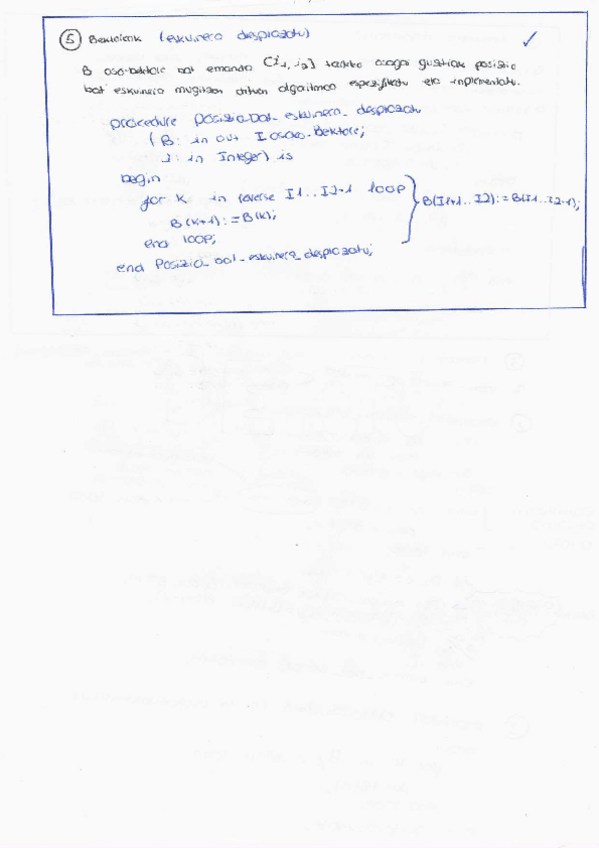 5 Bektoreak (eskuinera desplazatu) ✓
B oso-bektore bat emanda [i1, i2] tarteko osagai guztiak posizio
bat eskuinera mugitzen dituen algoritmoa espezifikatu eta inplementatu.
procedure Posizio_bat_eskuinera_desplazatu
( B: in out I_osoko_Bektore;
J: in Integer) is
begin
for K in reverse I1..I2-1 loop
B(K+1):=B(K);
end loop;
B(I1+1..I2):=B(I1..I2-1);
end Posizio_bat_eskuinera_desplazatu;